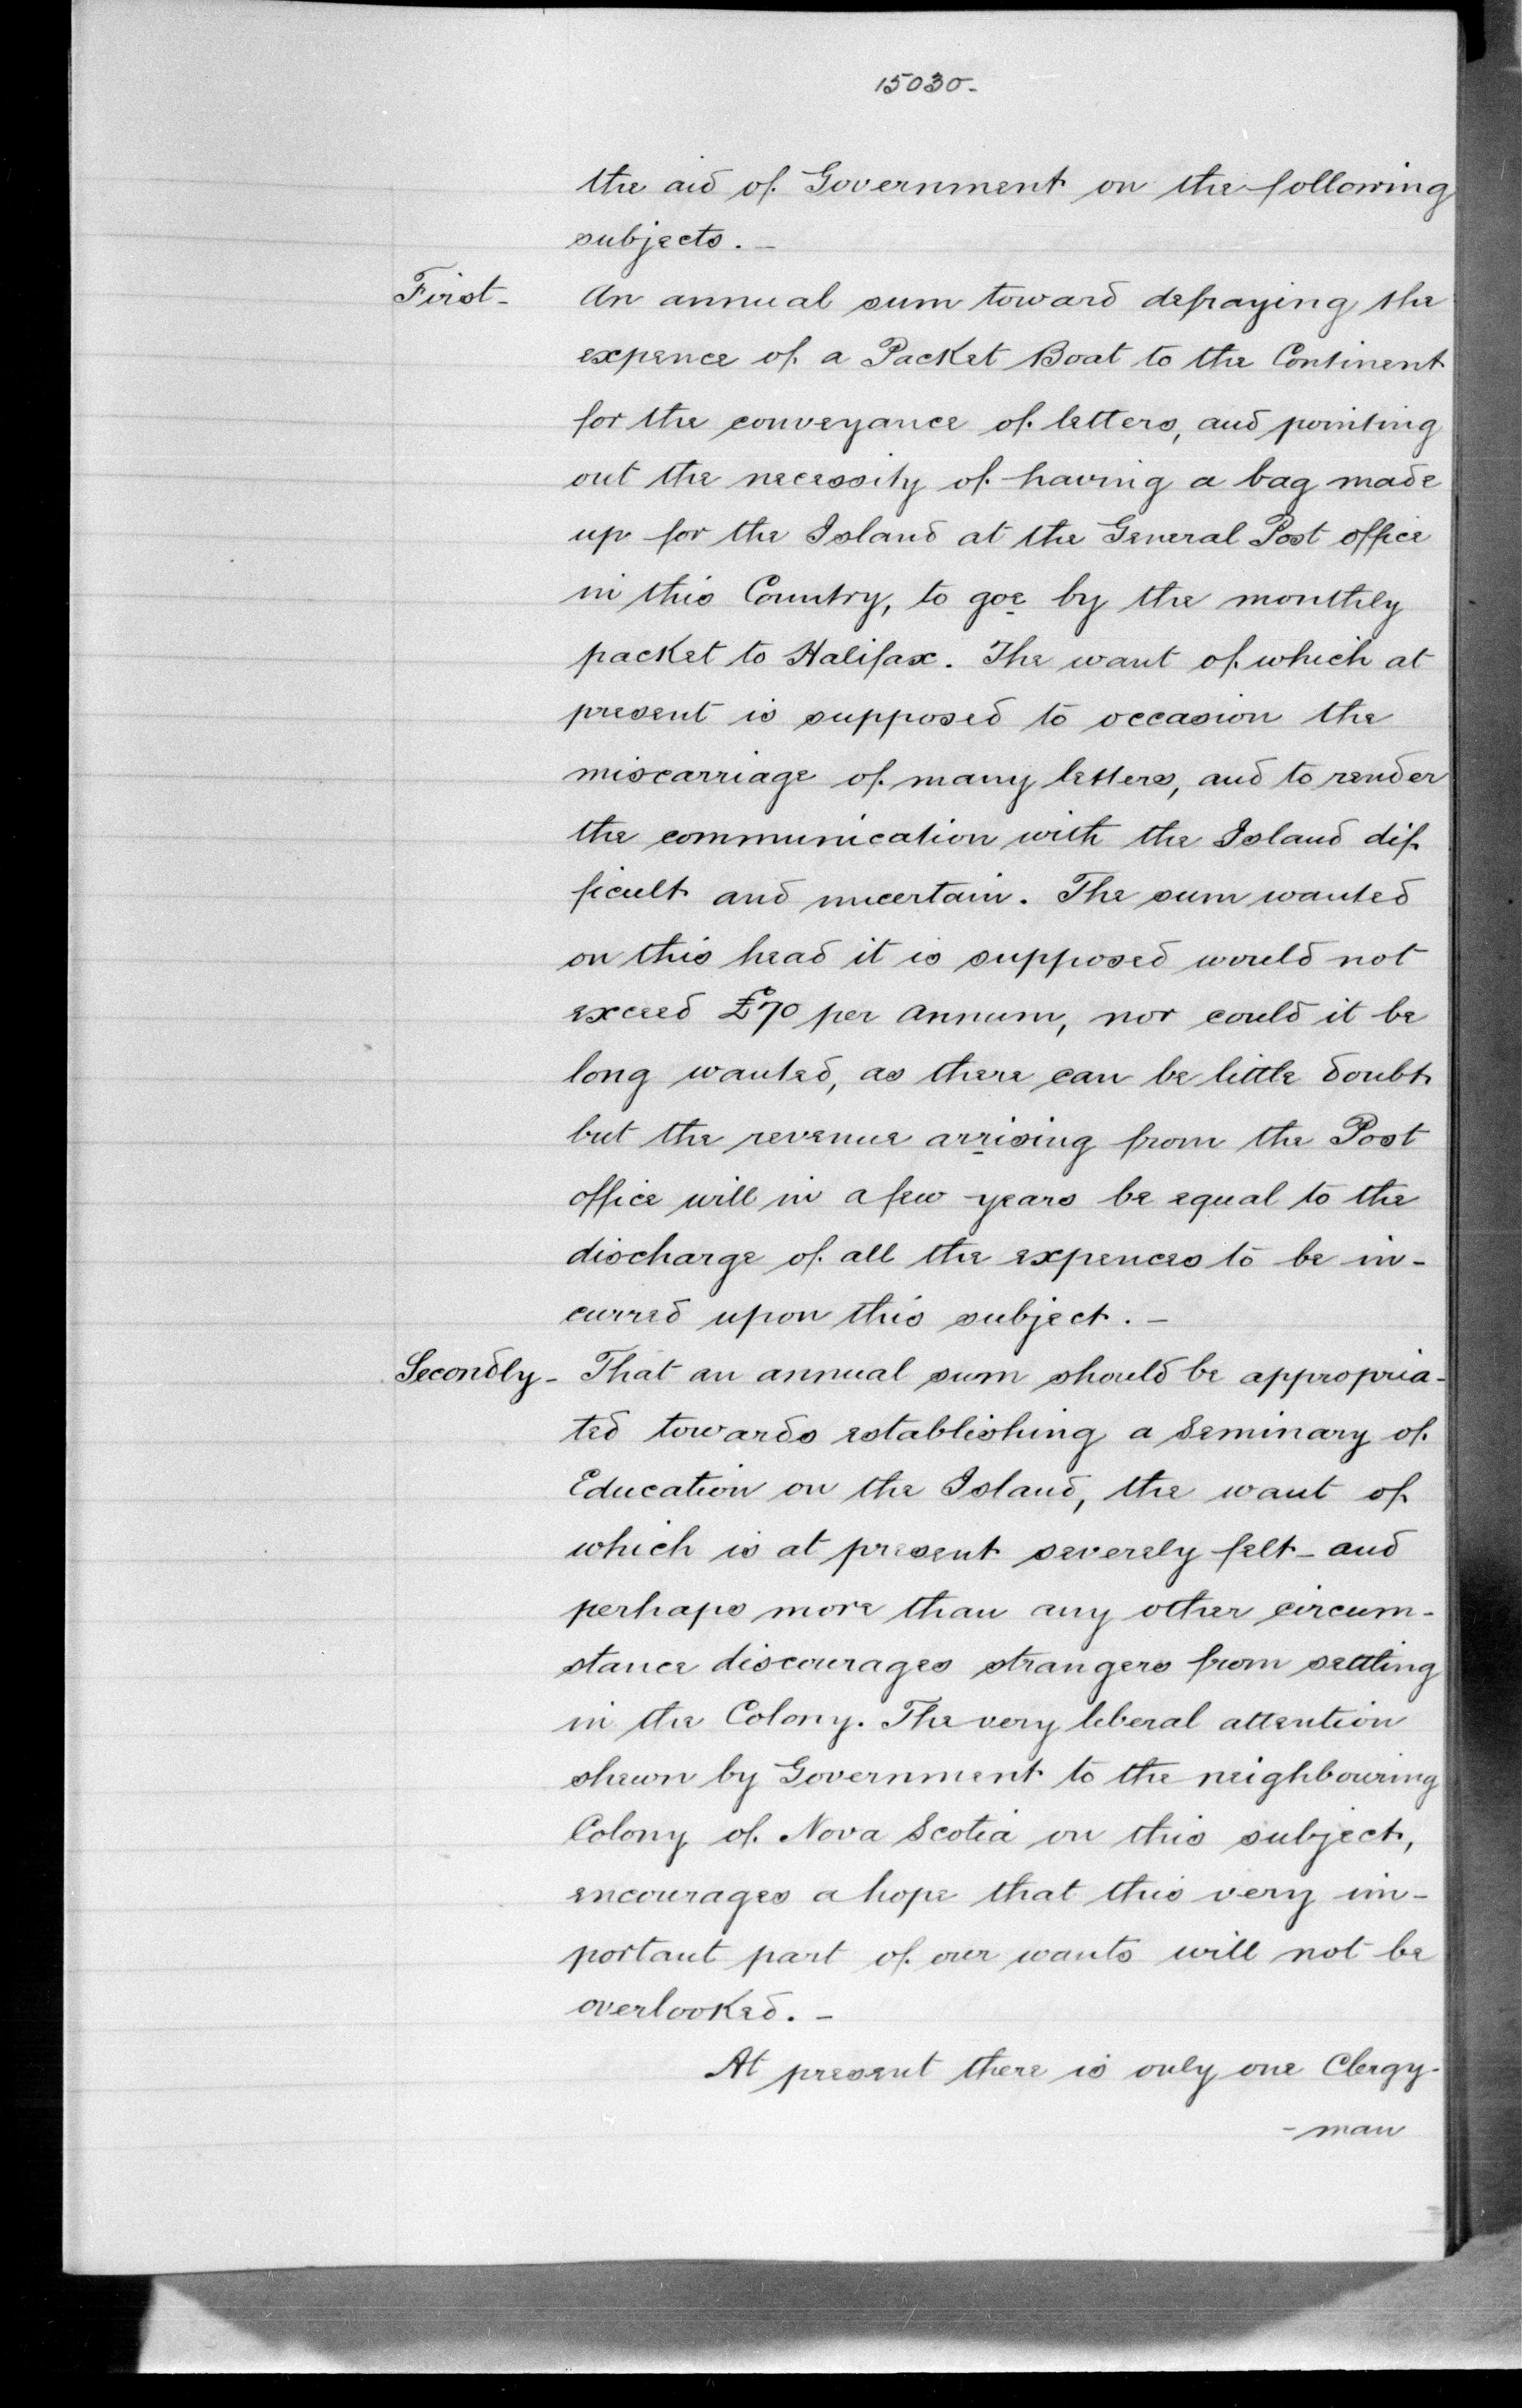 15030-
the aid of Government on the following
subjects. -
First - An annual sum toward defraying the
expence of a Packet Boat to the Continent
for the conveyance of letters, and pointing
out the necessity of having a bag made
up for the Island at the General Post office
in this Country, to goe by the monthly
packet to Halifax. The want of which at
present is supposed to occasion the
miscarriage of many letters, and to render
the communication with the Island dif
ficult and uncertain. The sum wanted
on this head it is supposed would not
exceed £70 per annum, nor could it be
long wanted, as there can be little doubt
but the revenue arrising from the Post
office will in a few years be equal to the
discharge of all the expences to be in-
curred upon this subject. -
Secondly - That an annual sum should be appropria-
ted towards establishing a Seminary of
Education on the Island, the want of
which is at present severely felt - and
perhaps more than any other circum-
stance discourages strangers from settling
in the Colony. The very liberal attention
shewn by Government to the neighbouring
Colony of Nova Scotia on this subject,
encourages a hope that this very im-
portant part of our wants will not be
overlooked. -
At present there is only one Clergy-
- man